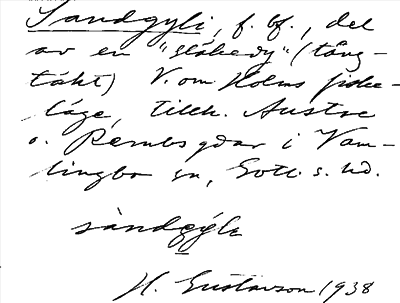 Sandgyli, f. bf., del
av en "slåkedy" (tång-
täkt) V. om Holms fiske-
läge, tillh. Austre
o. Rembsgdar i Vam-
lingbo sn, Gotl. s. hd.
sàndgýlı
H. Gustavson 1938